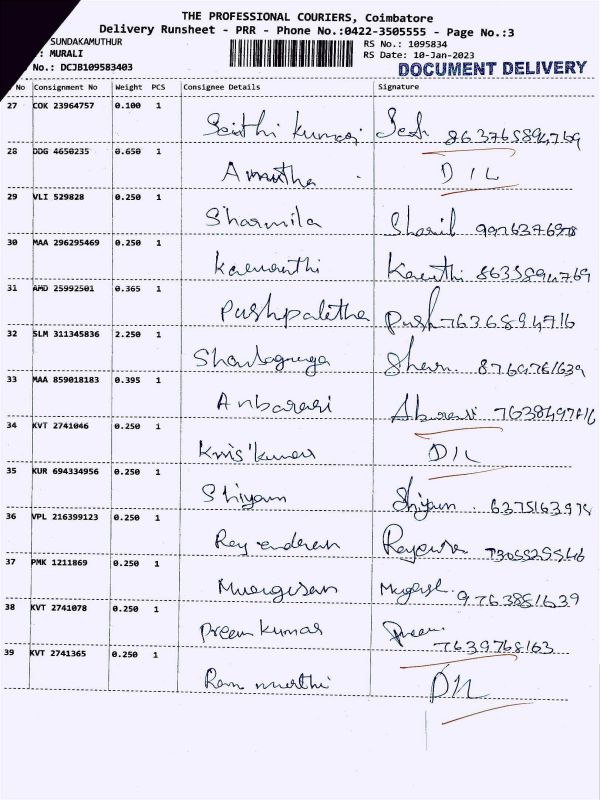 THE PROFESSIONAL COURIERS, Coimbatore
Delivery Runsheet - PRR - Phone No.:0422-3505555 - Page No.:3
SUNDAKAMUTHUR
: MURALI
No.: DCJB109583403
RS No.: 1095834
RS Date: 10-Jan-2023
DOCUMENT DELIVERY
No Consignment No Weight PCS Consignee Details Signature
27 COK 23964757 0.100 1
Sakthi kumar 863765894769
28 DDG 4650235 0.650 1
Amutha D I L
29 VLI 529828 0.250 1
Sharmila Sharil 9976376978
30 MAA 296295469 0.250 1
Keerthi 8635894769
31 AMD 25992501 0.365 1
Pushpaletha Push 7636894716
32 SLM 311345836 2.250 1
Sharn. 8769761639
33 MAA 859018183 0.395 1
Anbarasi 7638497816
34 KVT 2741046 0.250 1
Kris'kumar D I L
35 KUR 694334956 0.250 1
Shiyam Shiyam 6375163975
36 VPL 216399123 0.250 1
Rajendran
37 PMK 1211869 0.250 1
Murugesan 9763881639
38 KVT 2741078 0.250 1
Preem kumar Preem
7639768163
39 KVT 2741365 0.250 1
Ram murthi DIL